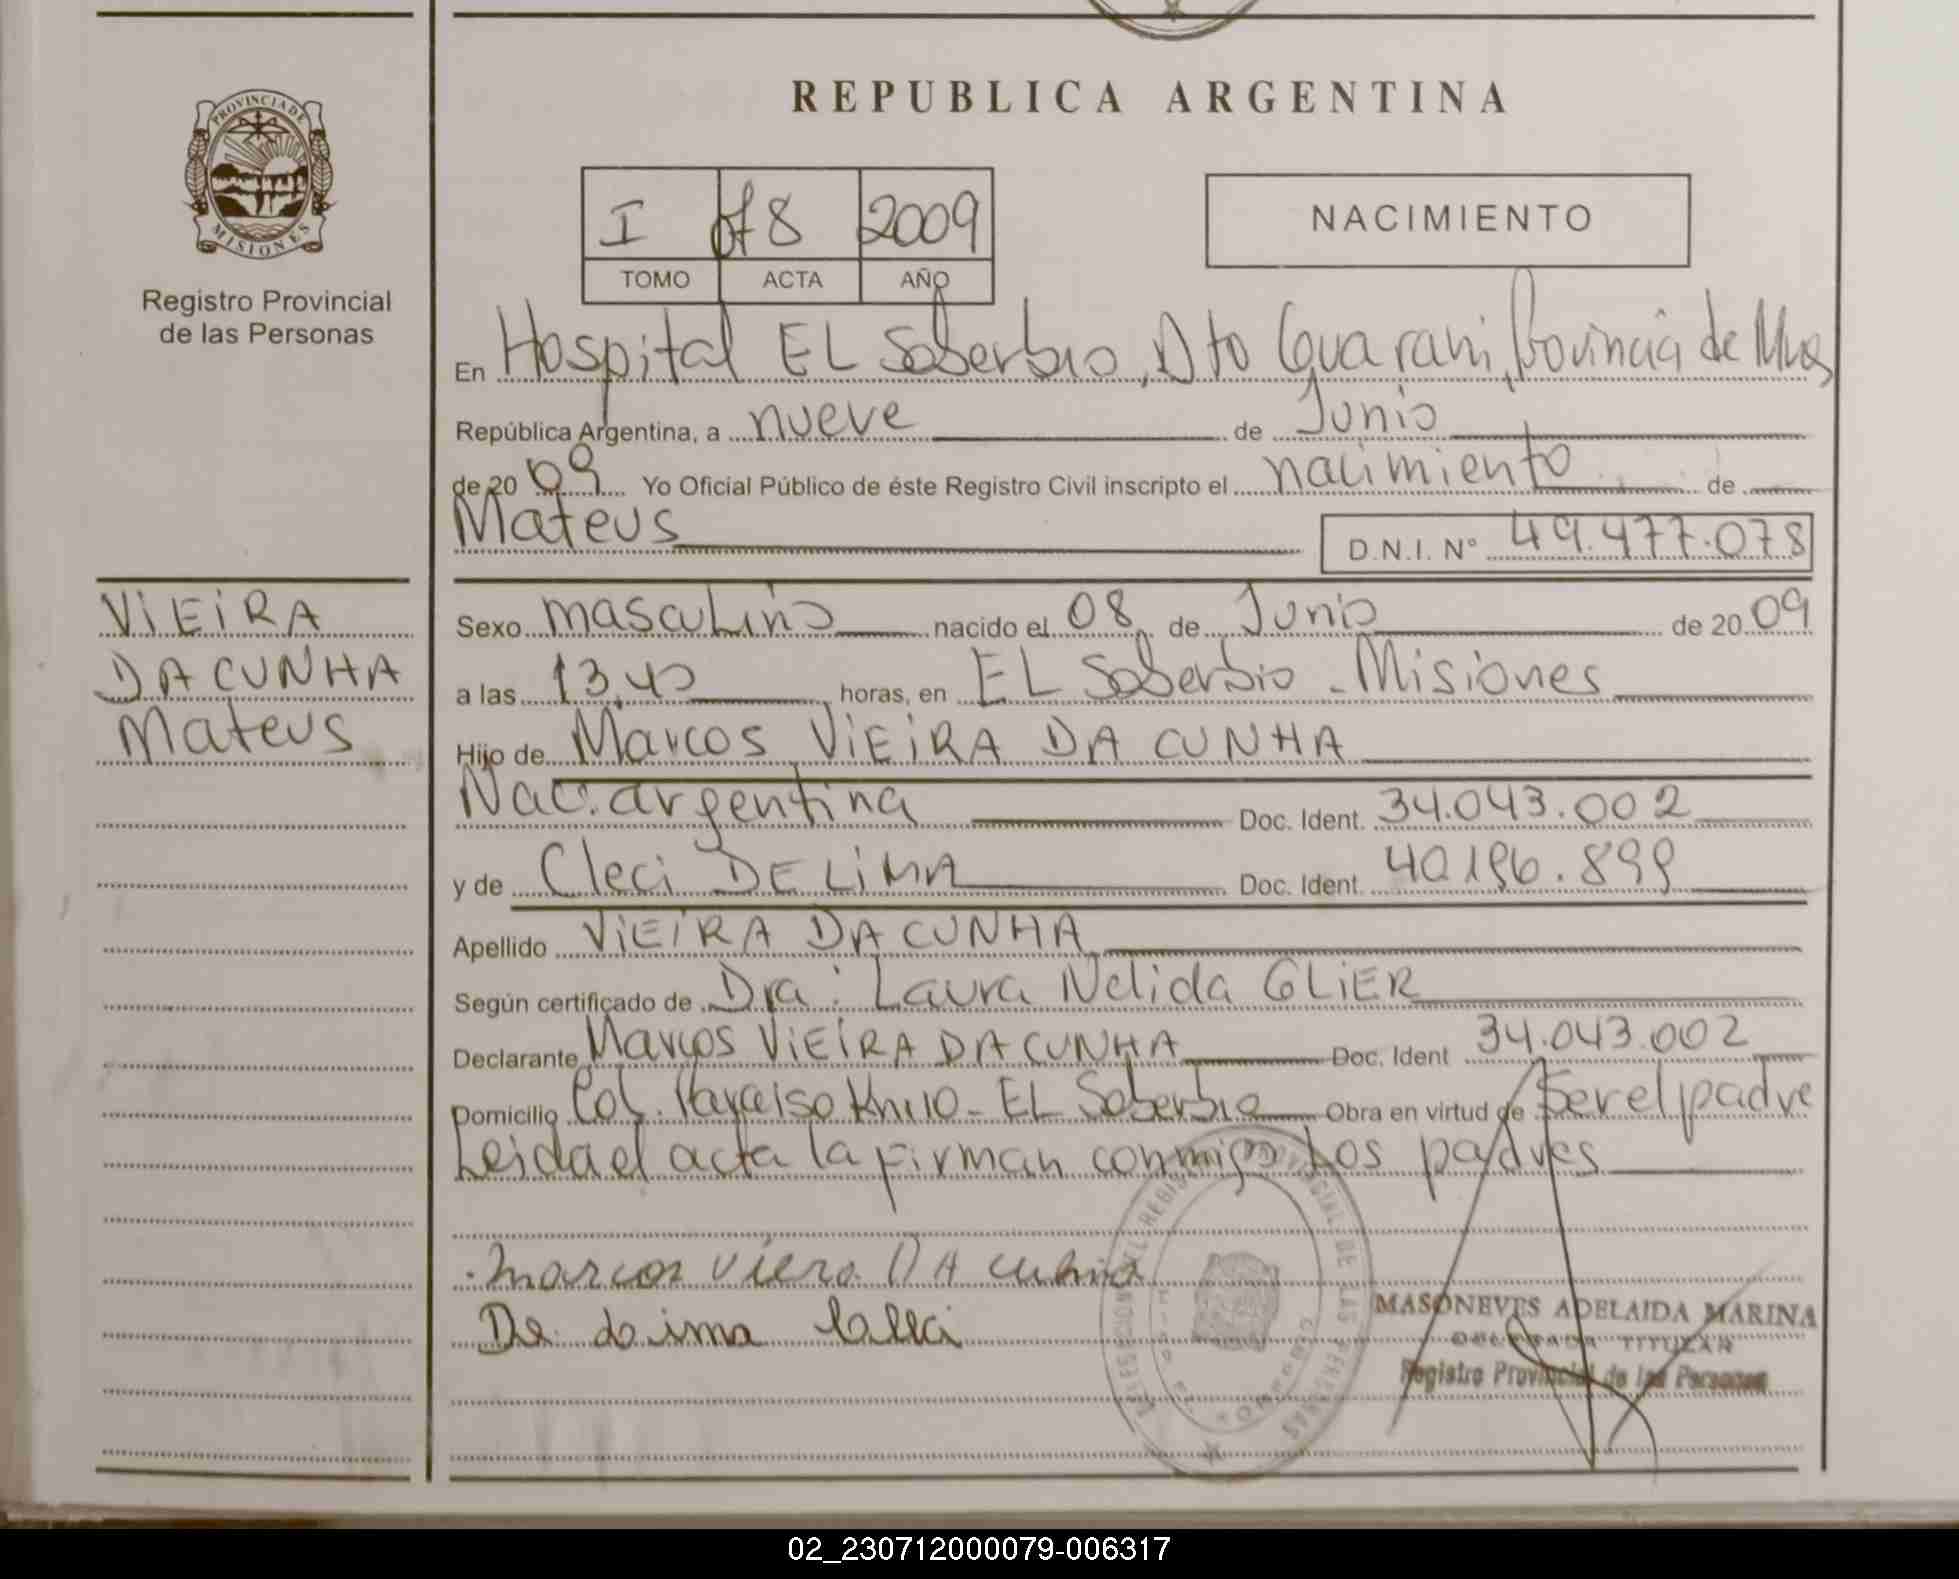 REPUBLICA ARGENTINA
PROVINCIA DE
MISIONES
Registro Provincial
de las Personas
I 078 2009
TOMO ACTA AÑO
NACIMIENTO
En Hospital EL Soberbio, Dto Guarani, Provincia de Mnes
República Argentina, a nueve de Junio
de 20 09 Yo Oficial Público de éste Registro Civil inscripto el nacimiento de
Mateus D.N.I. N° 49.477.078
VIEIRA
DA CUNHA
Mateus
Sexo masculino nacido el 08 de Junio de 20 09
a las 13,40 horas, en EL Soberbio - Misiones
Hijo de Marcos VIEIRA DA CUNHA
Nac. argentina Doc. Ident. 34.043.002
y de Cleci DE LIMA Doc. Ident. 40.196.899
Apellido VIEIRA DA CUNHA
Según certificado de Dra: Laura Nelida GLIER
Declarante Marcos VIEIRA DA CUNHA Doc. Ident 34.043.002
Domicilio Col. Paraiso Km 10 - EL Soberbio Obra en virtud de Ser el padre
Leida el acta la firman conmigo Los padres
marcos viera DA cunha
De Lima
MASONEVES ADELAIDA MARINA
DELEGADA TITULAR
Registro Provincial de las Personas
02_230712000079-006317